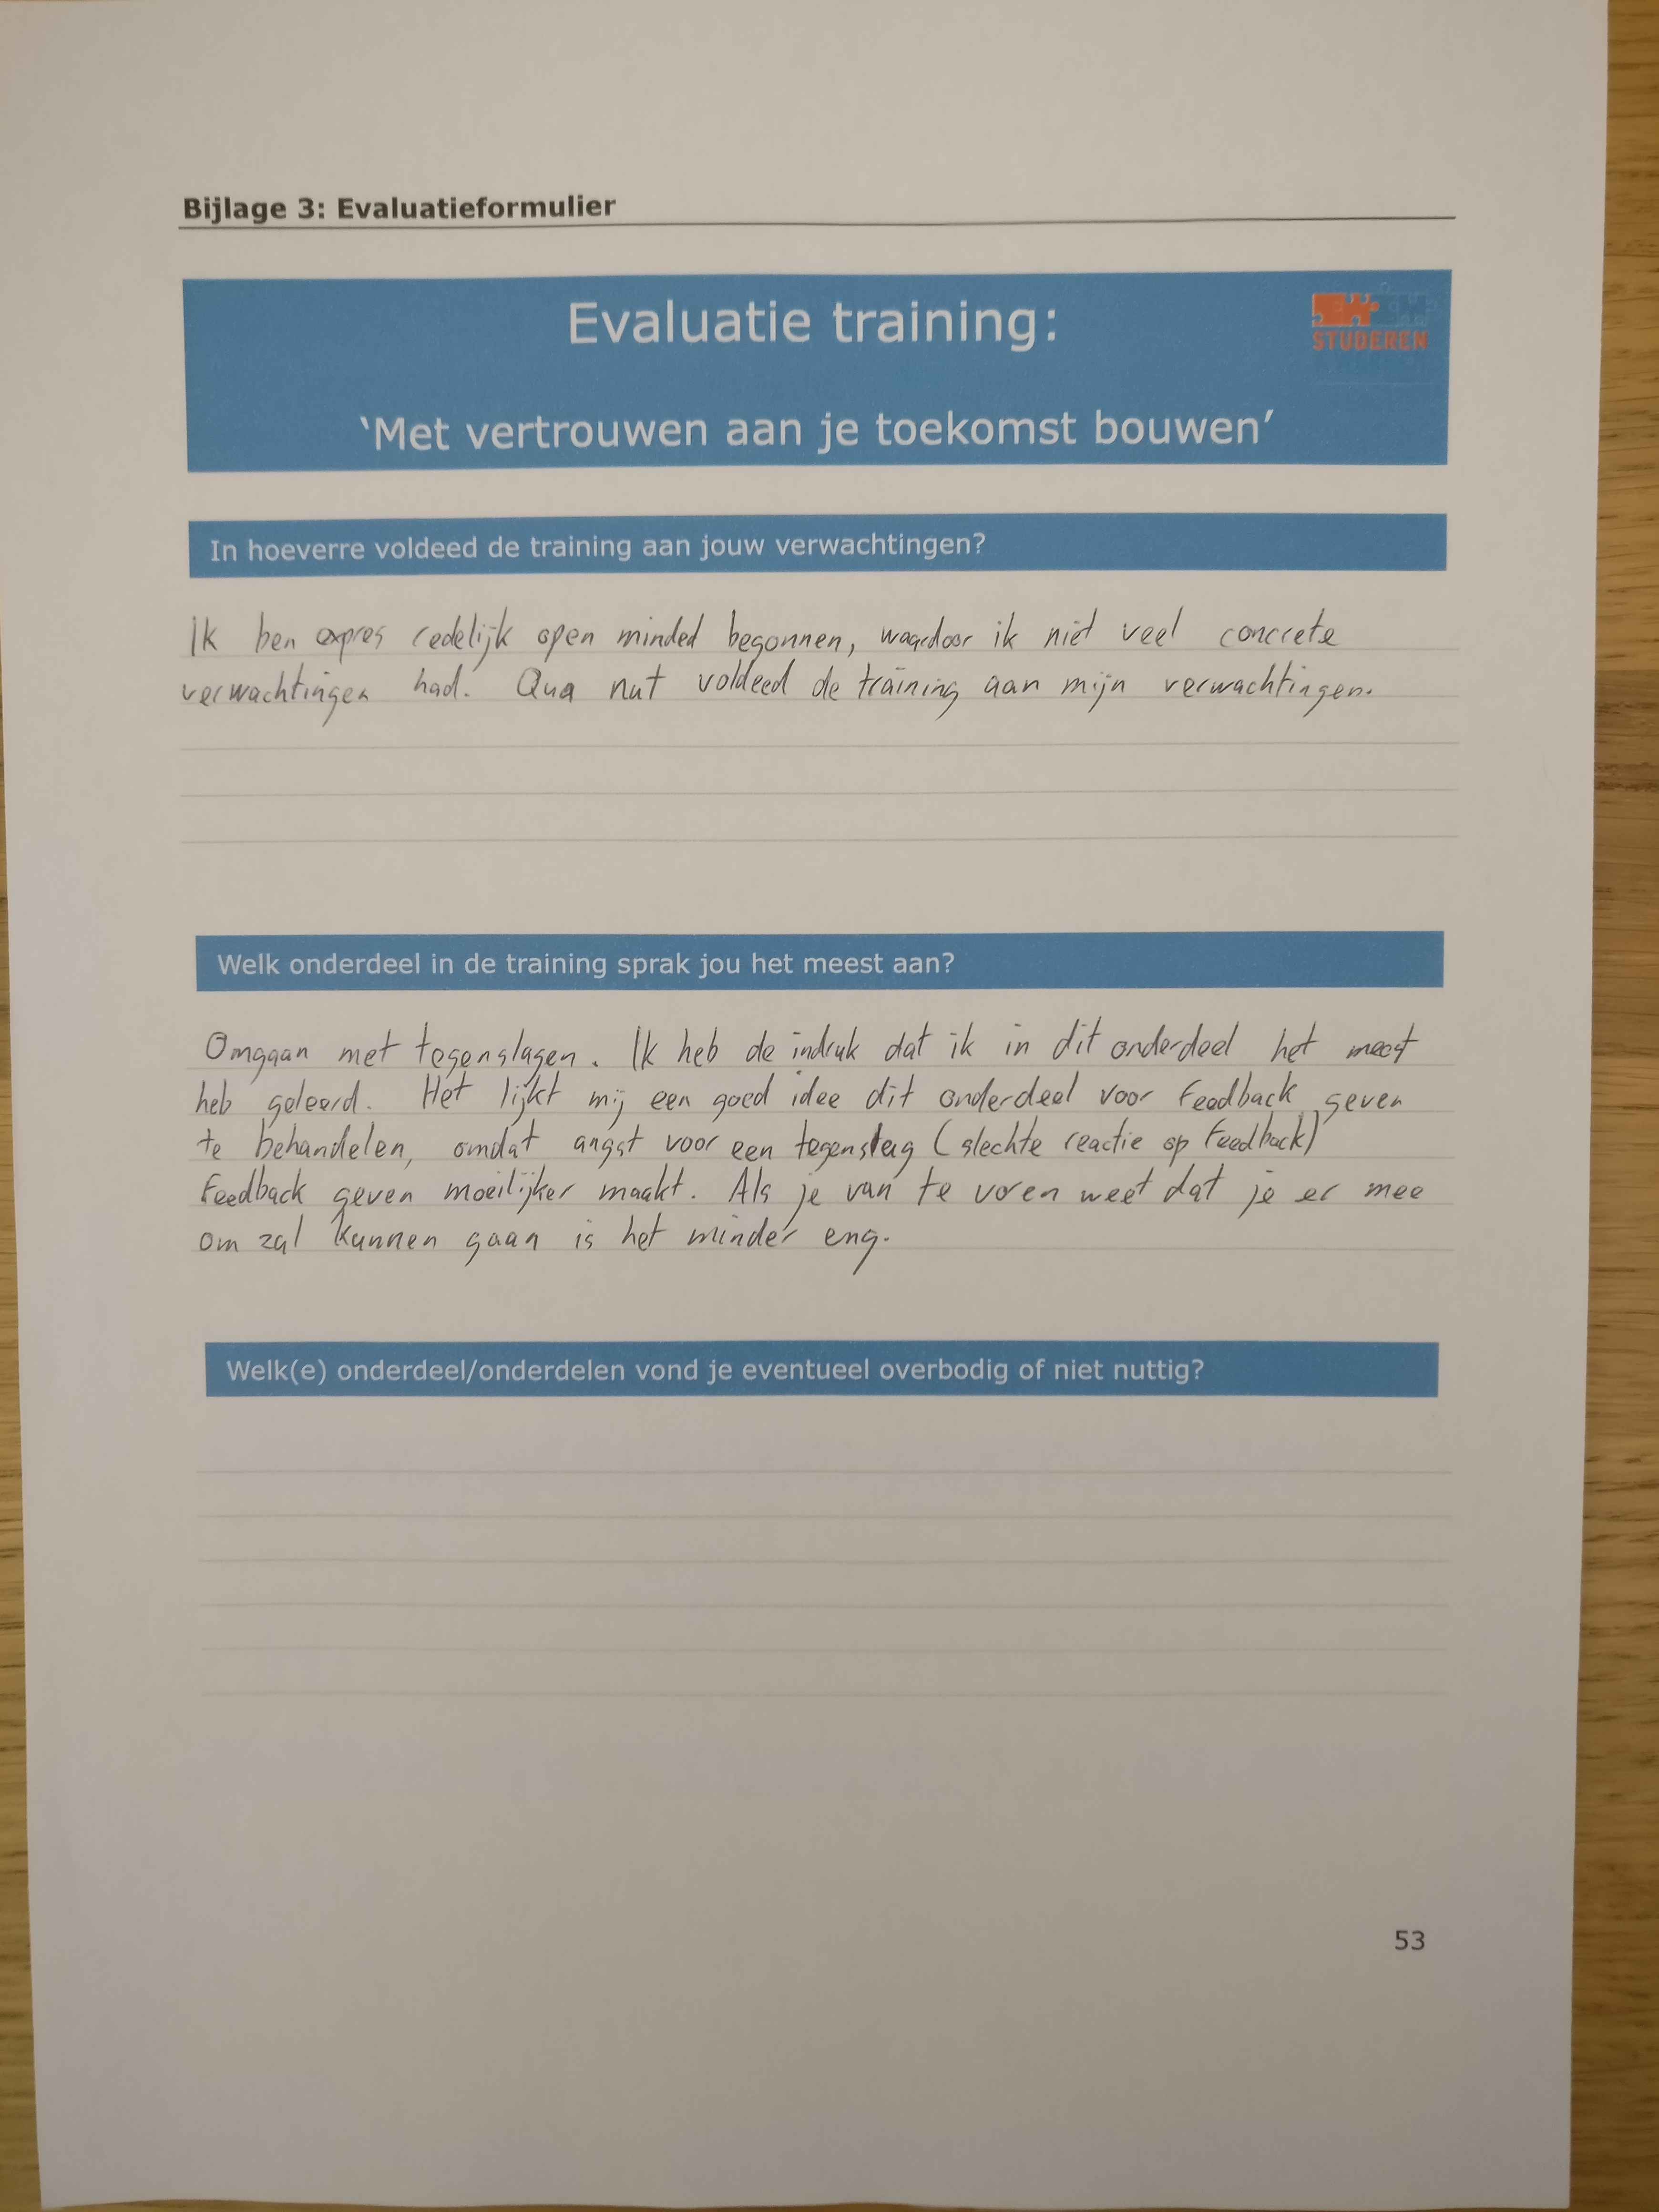 Bijlage 3: Evaluatieformulier
Evaluatie training:
STUDEREN
‘Met vertrouwen aan je toekomst bouwen’
In hoeverre voldeed de training aan jouw verwachtingen?
Ik ben expres redelijk open minded begonnen, waardoor ik niet veel concrete
verwachtingen had. Qua nut voldeed de training aan mijn verwachtingen.
Welk onderdeel in de training sprak jou het meest aan?
Omgaan met tegenslagen. Ik heb de indruk dat ik in dit onderdeel het meest
heb geleerd. Het lijkt mij een goed idee dit onderdeel voor feedback geven
te behandelen, omdat angst voor een tegenslag (slechte reactie op feedback)
feedback geven moeilijker maakt. Als je van te voren weet dat je er mee
om zal kunnen gaan is het minder eng.
Welk(e) onderdeel/onderdelen vond je eventueel overbodig of niet nuttig?
53